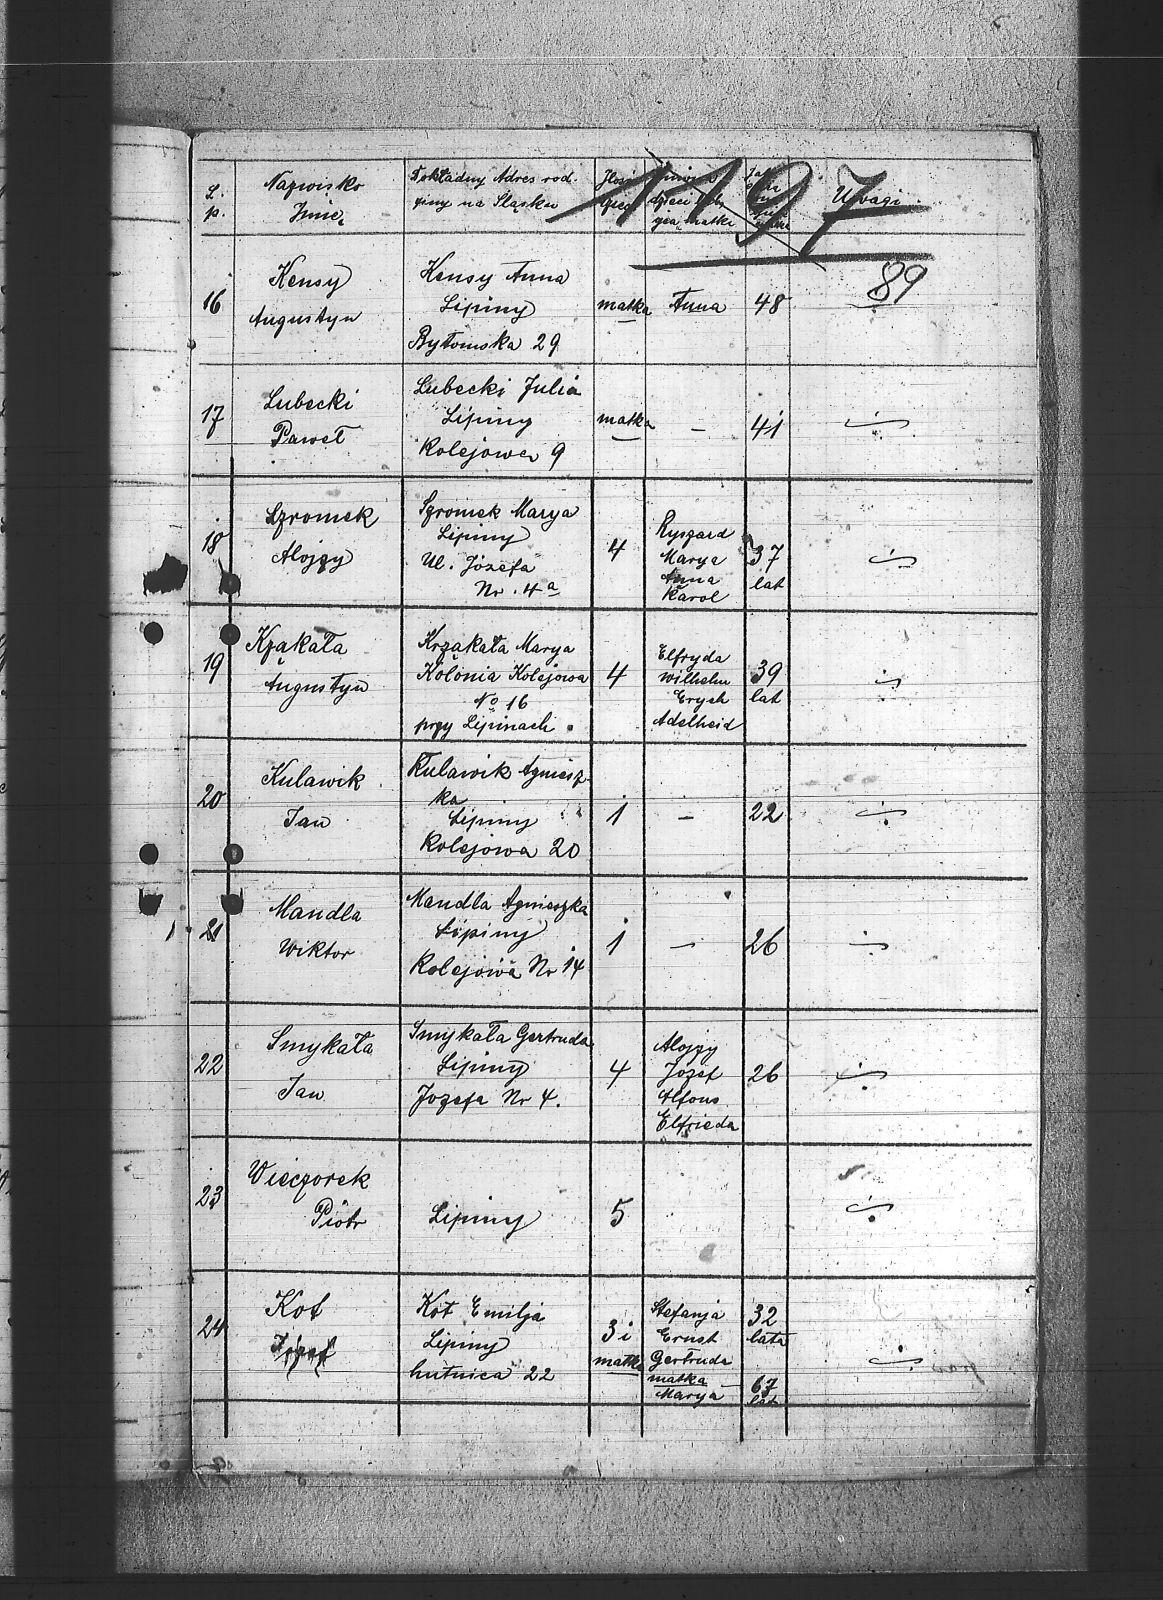 L. p. Nazwisko Imię Dokładny Adres rodziny na Śląsku Ilość Uwagi
197
89
16 Kensy Augustyn
Kensy Anna
Lipiny
Bytomska 29
matka Anna 48
17 Lubecki Paweł
Lubecki Julia
Lipiny
Kolejowa 9
matka - 41
18 Szromek Alojzy
Szromek Marya
Lipiny
Ul. Józefa
Nr. 4a
4
Ryszard
Marya
Anna
Karol
37 lat
19 Krzakała Augustyn
Krzakała Marya
Kolonia Kolejowa
No 16
przy Lipinach
4
Elfryda
Wilhelm
Erych
Adelheid
39 lat
20 Kulawik Jan
Kulawik Agniesz-
ka
Lipiny
Kolejowa 20
1 - 22
21 Mandla Wiktor
Mandla Agnieszka
Lipiny
Kolejowa Nr 14
1 - 26
22 Smykała Jan
Smykała Gertruda
Lipiny
Józefa Nr 4.
4
Alojzy
Józef
Alfons
Elfrieda
26
23 Wieczorek Piotr
Lipiny
5
24 Kot Józef
Kot Emilja
Lipiny
hutnica 22
3 i matka
Stefanja
Ernst
Gertruda
matka
Marya
32 lata
67 lat